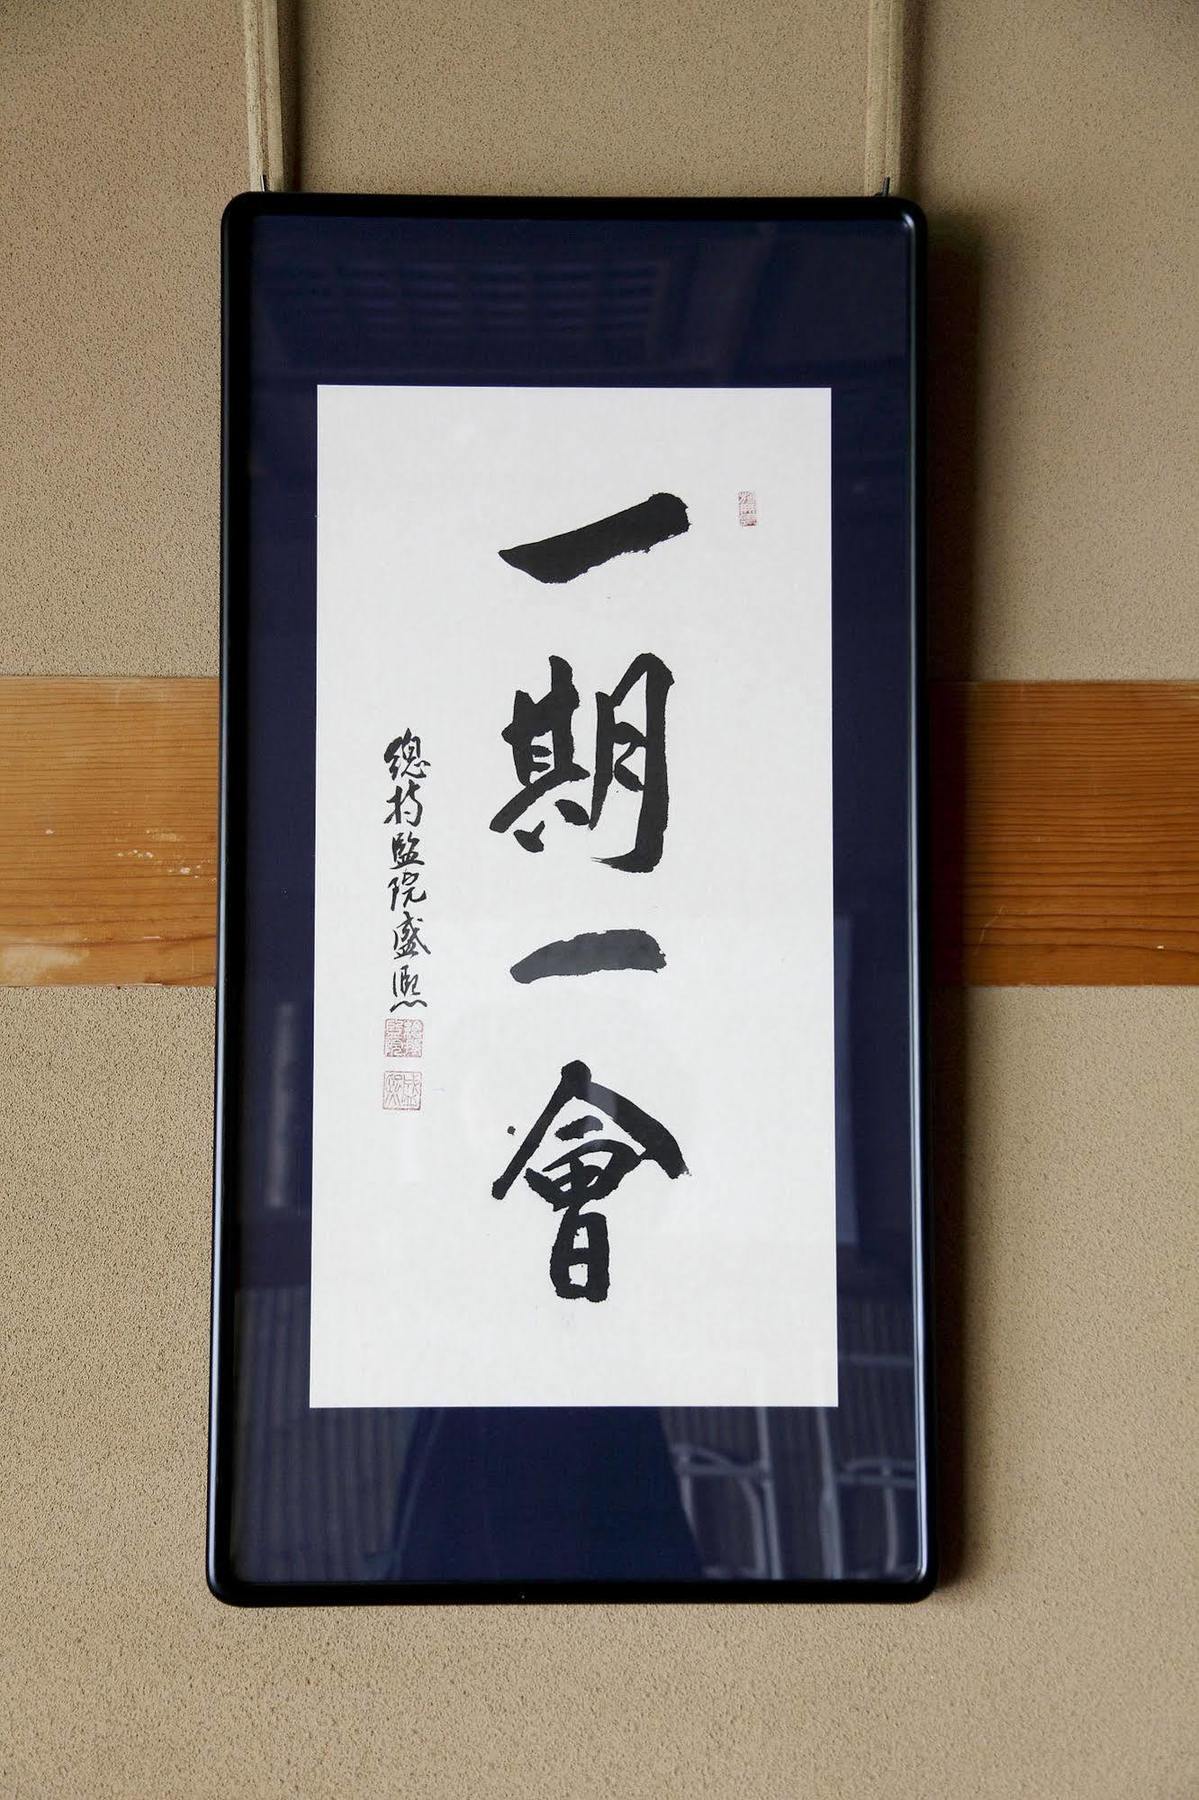 一期一會
總持監院盛熈